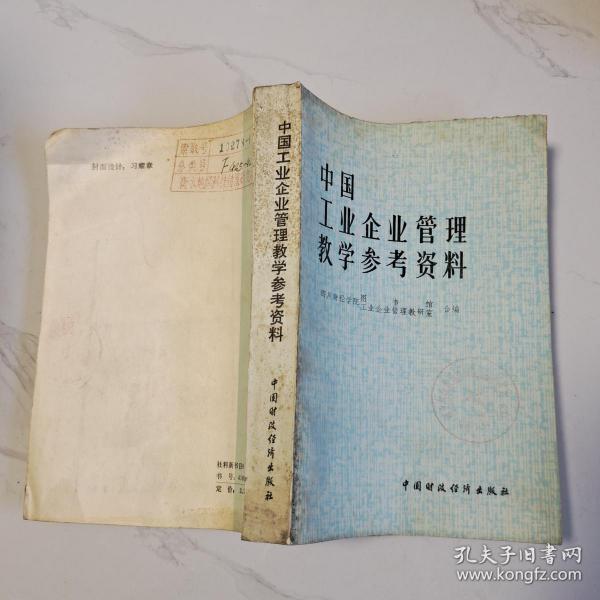 中国
工业企业管理
教学参考资料
四川财经学院图书馆
工业企业管理教研室 合编
中国财政经济出版社
中国工业企业管理教学参考资料
中国财政经济出版社
封面设计：习耀章
登录号
分类号
社科新书目
书号
定价
孔夫子旧书网
www.kongfz.com